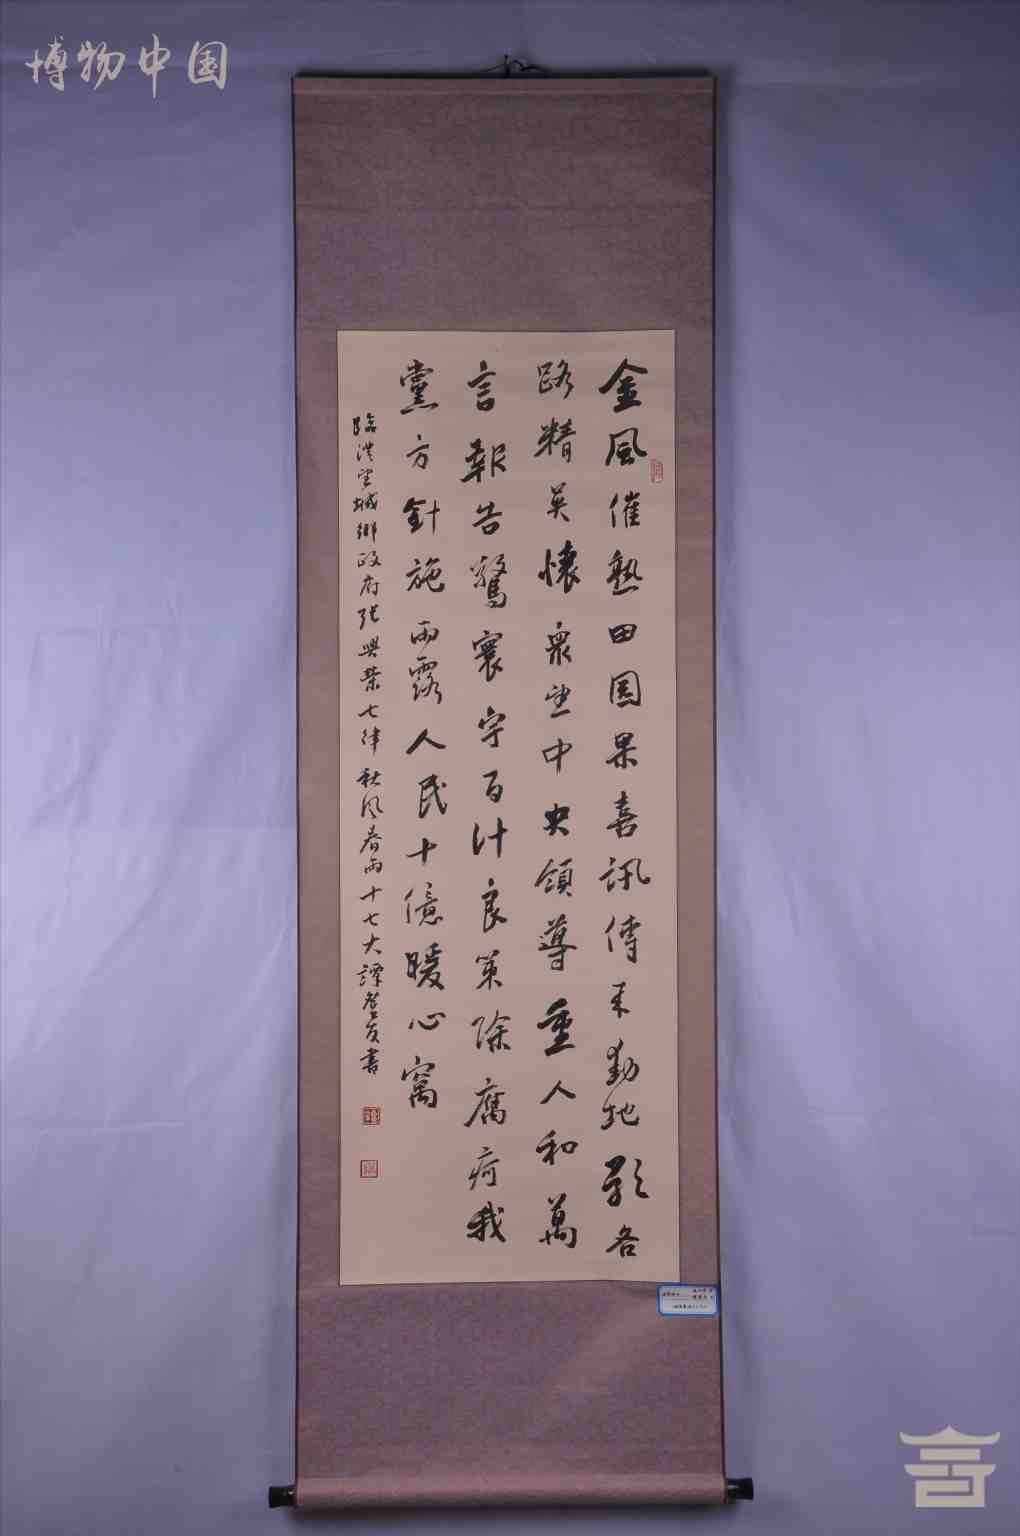 博物中国
金風催熟田園果喜訊傳来動地歌各
路精英懷眾望中央領導重人和萬
言報告驚寰宇百计良策除腐疴我
黨方針施雨露人民十億暖心窩
臨洪望城鄉政府张興荣七律秋风春雨十七大譚啓友書